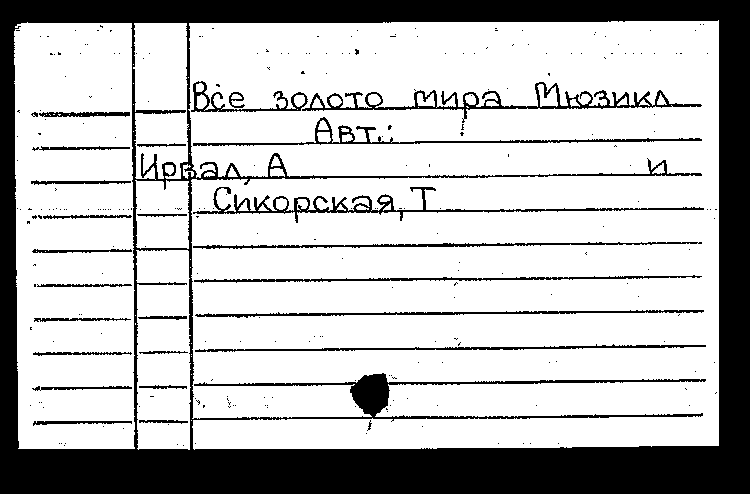 Все золото мира Мюзикл
Авт.:
Ирвал, А и
Сикорская, Т